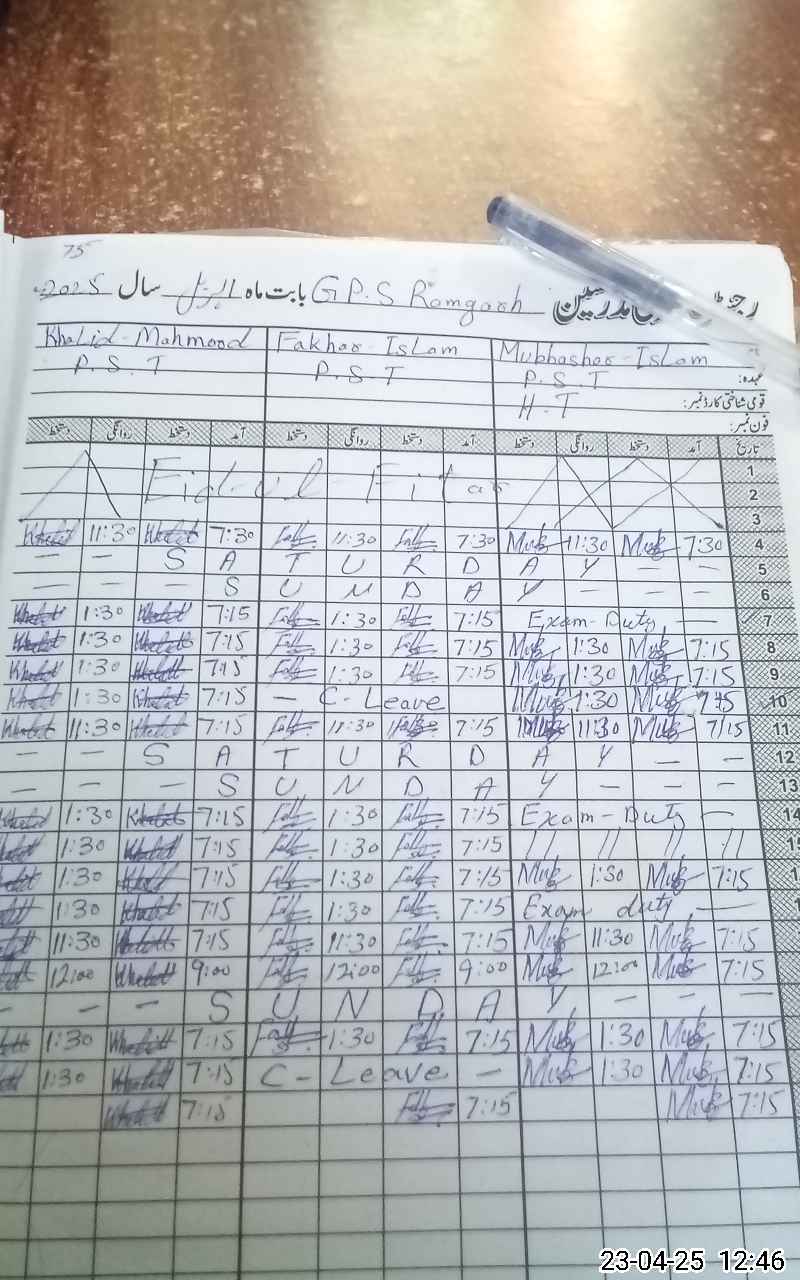 75
رجسٹر حاضری مدرسین G P.S Ramgarh بابت ماہ اپریل سال 2025
Khalid-Mahmood Fakhar-Islam Mubhashar-Islam
P.S.T P.S.T P.S.T عہدہ:
H-T قومی شناختی کارڈ نمبر:
فون نمبر:
دستخط روانگی دستخط آمد دستخط روانگی دستخط آمد دستخط روانگی دستخط آمد تاریخ
1
Eid-ul-Fitar 2
3
Khalid 11:30 Khalid 7:30 11:30 7:30 Mub 11:30 Mub 7:30 4
- - S A T U R D A Y - - 5
- - - S U N D A Y - - - 6
Khalid 1:30 Khalid 7:15 1:30 7:15 Exam-Duty — 7
Khalid 1:30 Khalid 7:15 1:30 7:15 Mub 1:30 Mub 7:15 8
Khalid 1:30 Khalid 7:15 1:30 7:15 Mub 1:30 Mub 7:15 9
Khalid 1:30 Khalid 7:15 - C-Leave Mub 1:30 Mub 7:15 10
Khalid 11:30 Khalid 7:15 11:30 7:15 Mub 11:30 Mub 7:15 11
- - S A T U R D A Y - - 12
- - - S U N D A Y - - - 13
Khalid 1:30 Khalid 7:15 1:30 7:15 Exam-Duty — 14
1:30 Khalid 7:15 1:30 7:15 // // // // 15
1:30 Khalid 7:15 1:30 7:15 Mub 1:30 Mub 7:15
1:30 Khalid 7:15 1:30 7:15 Exam duty —
11:30 Khalid 7:15 11:30 7:15 Mub 11:30 Mub 7:15
12:00 Khalid 9:00 12:00 9:00 Mub 12:00 Mub 7:15
- - - S U N D A Y - - -
1:30 Khalid 7:15 1:30 7:15 Mub 1:30 Mub 7:15
1:30 Khalid 7:15 C-Leave - Mub 1:30 Mub 7:15
Khalid 7:15 7:15 Mub 7:15
23-04-25 12:46